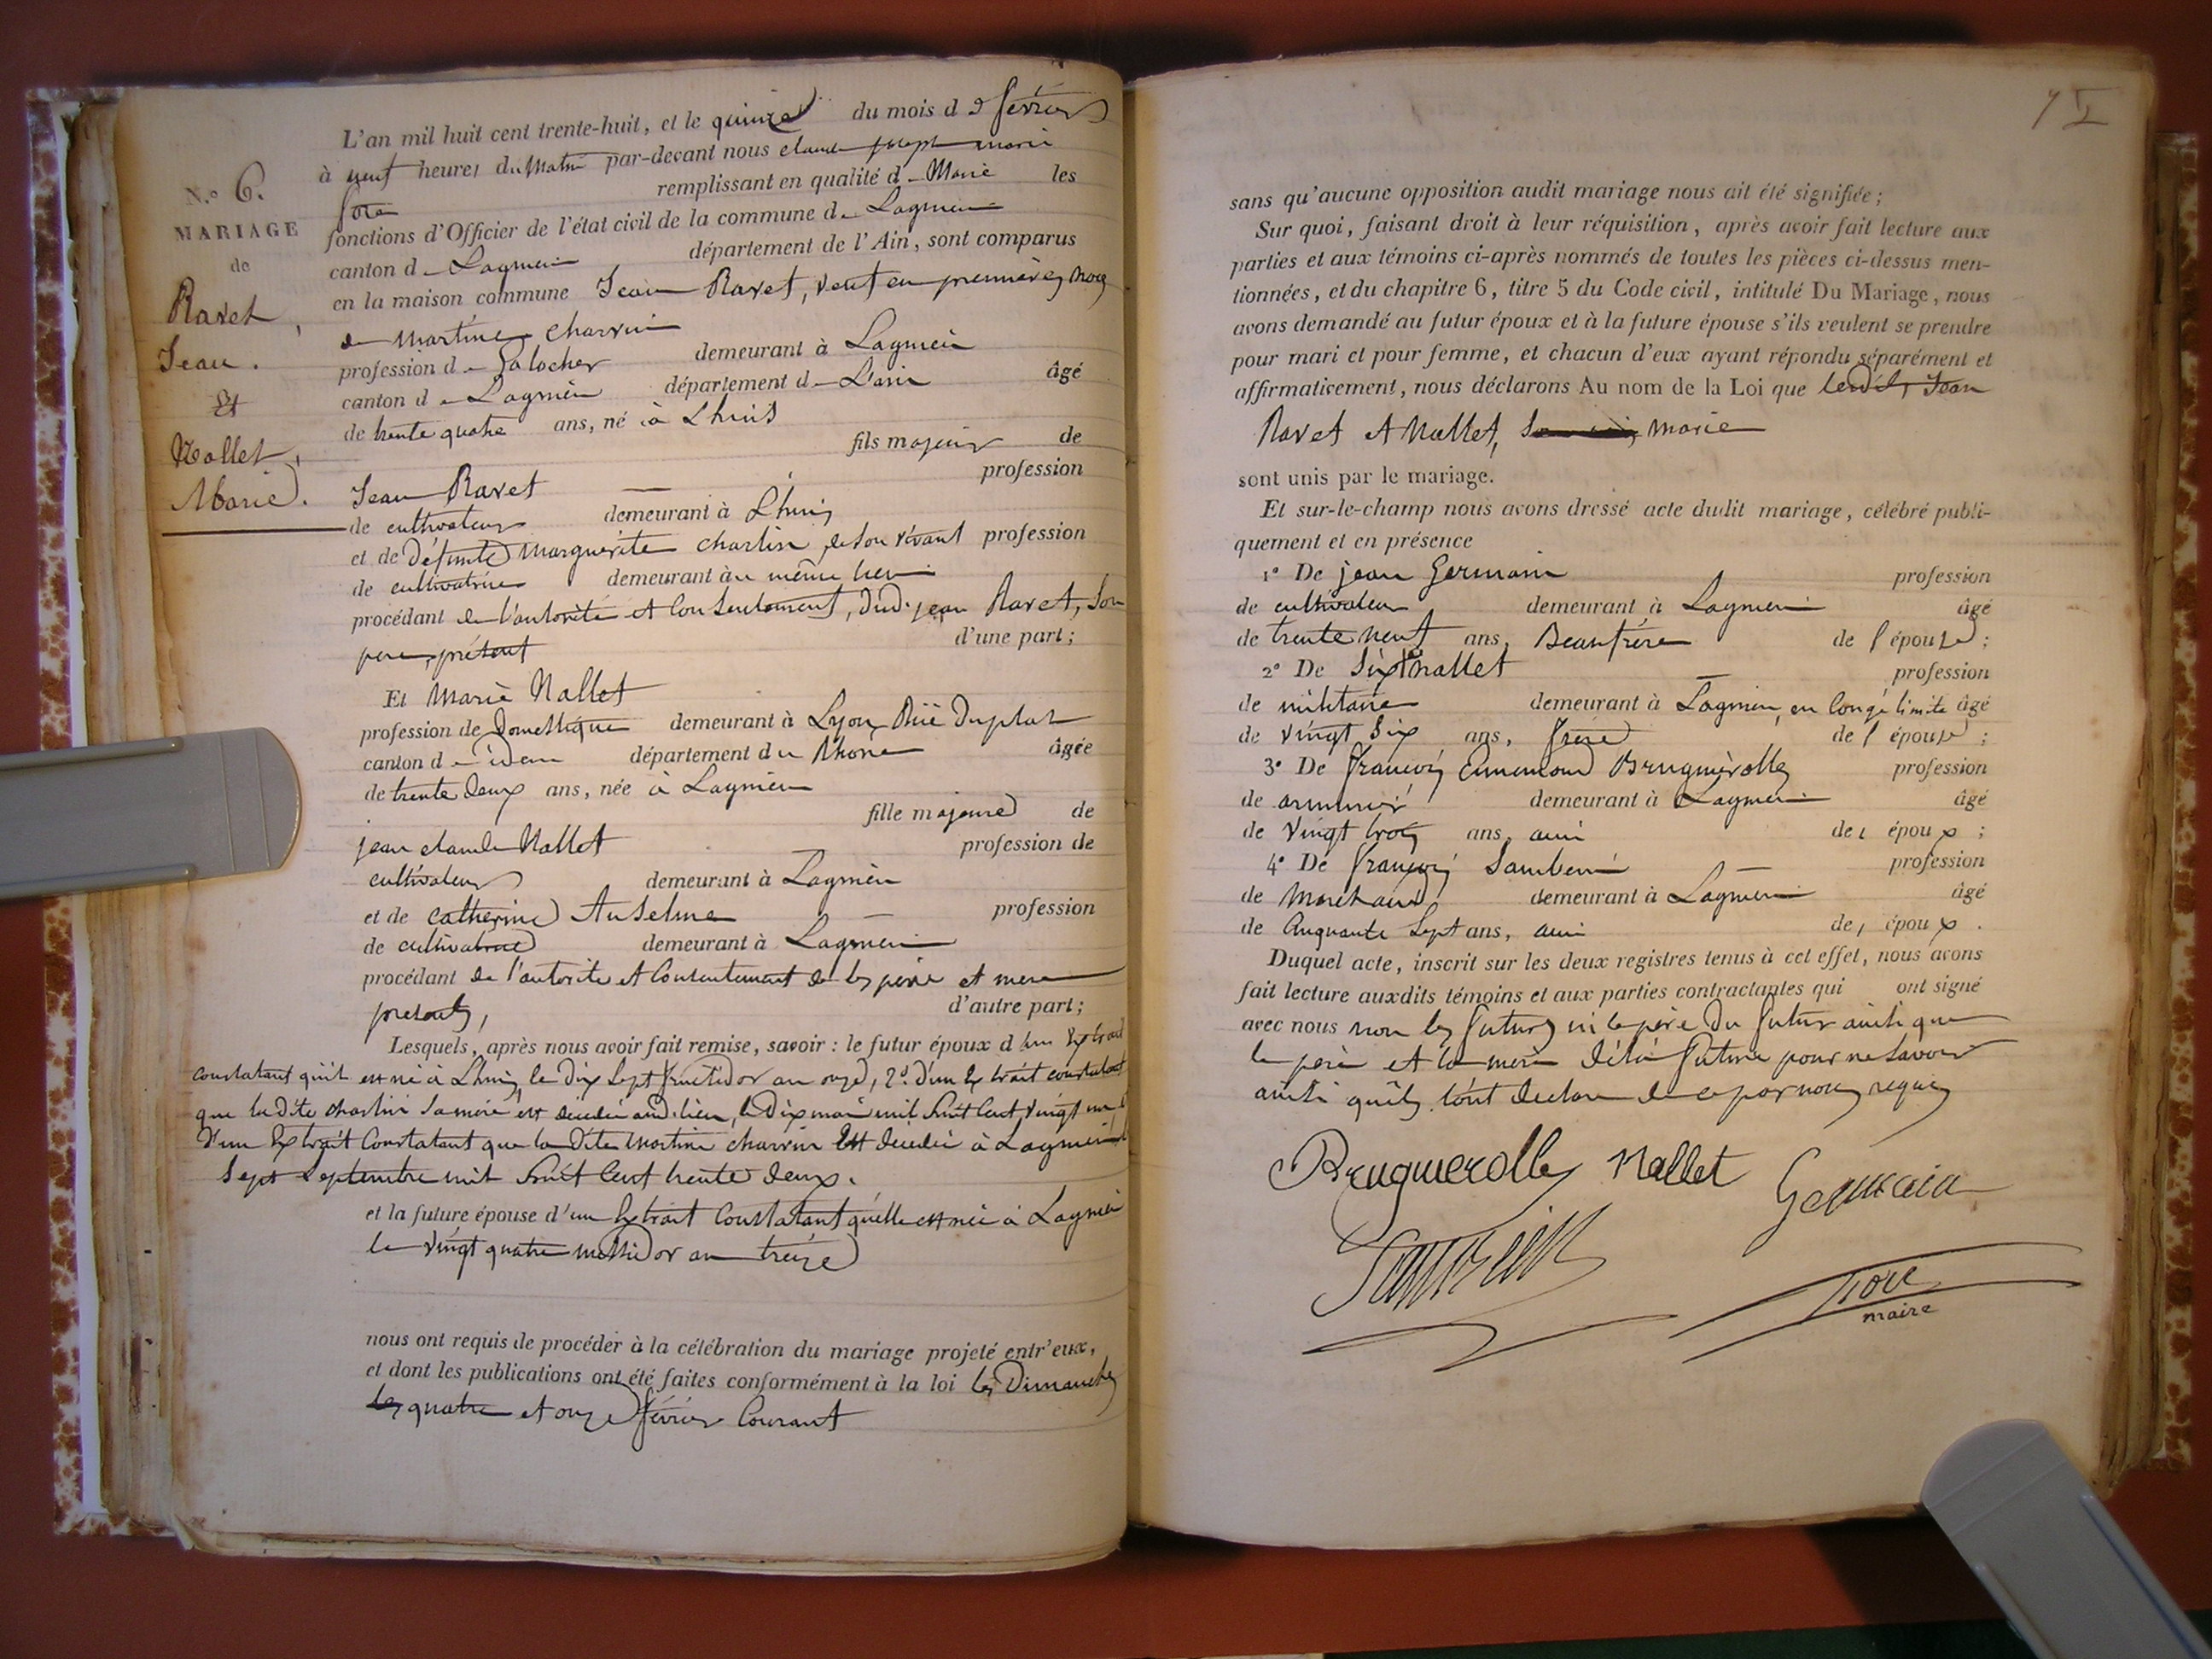 N.º 6.
MARIAGE
de
Ravet,
Jean.
Et
Nallet,
Marie.
L'an mil huit cent trente-huit, et le quinze du mois de février
à neuf heures du Matin par-devant nous claude joseph marie
remplissant en qualité de Maire les
fonctions d'Officier de l'état civil de la commune de Lagnieu
canton de Lagnieu département de l'Ain, sont comparus
en la maison commune Jean Ravet, veuf en premières noces
de martine charvin
profession de Galocher demeurant à Lagnieu
canton de Lagnieu département de L'ain âgé
de trente quatre ans, né à Lhuis
fils majeur de
Jean Ravet profession
de cultivateur demeurant à Lhuis
et de défunte Marguerite charlin de son vivant profession
de cultivatrice demeurant au même lieu
procédant de l'autorité et Consentement, dud. jean Ravet, son
père, présent d'une part;
Et Marie Nallet
profession de Domestique demeurant à Lyon, Rüe Duplat
canton d idem département du Rhone âgée
de trente deux ans, née à Lagnieu
fille majeure de
jean claude Nallet profession de
cultivateur demeurant à Lagnieu
et de catherine Anselme profession
de cultivatrice demeurant à Lagnieu
procédant de l'autorité et Consentement de les père et mère
présents, d'autre part;
Lesquels, après nous avoir fait remise, savoir: le futur époux d'un Extrait
constatant qu'il est né à Lhuis le dix sept fructidor an onze, 2º. d'un Extrait constatant
que la dite charlin sa mère est décédée aud. lieu, le Dix mai mil huit Cent vingt un
D'un Extrait Constatant que la Dite Martine charvin Est décédée à Lagnieu
Sept Septembre mil huit Cent trente deux.
et la future épouse d'un Extrait Constatant qu'elle est née à Lagnieu
le vingt quatre messidor an treize
nous ont requis de procéder à la célébration du mariage projeté entr'eux,
et dont les publications ont été faites conformément à la loi les Dimanches
les quatre et onze février Courant
sans qu'aucune opposition audit mariage nous ait été signifiée;
Sur quoi, faisant droit à leur réquisition, après avoir fait lecture aux
parties et aux témoins ci-après nommés de toutes les pièces ci-dessus men-
tionnées, et du chapitre 6, titre 5 du Code civil, intitulé Du Mariage, nous
avons demandé au futur époux et à la future épouse s'ils veulent se prendre
pour mari et pour femme, et chacun d'eux ayant répondu séparément et
affirmativement, nous déclarons Au nom de la Loi que lesdits Jean
Ravet et Nallet, marie
sont unis par le mariage.
Et sur-le-champ nous avons dressé acte dudit mariage, célébré publi-
quement et en présence
1º De jean Germain profession
de cultivateur demeurant à Lagnieu âgé
de trente neuf ans, Beaufrère de l'épouse;
2º De Sixte nallet profession
de militaire demeurant à Lagnieu, en Congé limité âgé
de vingt Six ans, frère de l'épouse;
3º De françois Ennemond Bruguierolles profession
de armurier demeurant à Lagnieu âgé
de vingt trois ans, ami de l'époux;
4º De françois profession
de Marchand demeurant à Lagnieu âgé
de Cinquante Sept ans, ami de l'époux.
Duquel acte, inscrit sur les deux registres tenus à cet effet, nous avons
fait lecture auxdits témoins et aux parties contractantes qui ont signé
avec nous non les futurs ni le père du futur ainsi que
le père et la mère de la future pour ne Savoir
ainsi qu'ils l'ont déclaré de ce par nous requis
Bruguierolles Nallet Germain
maire